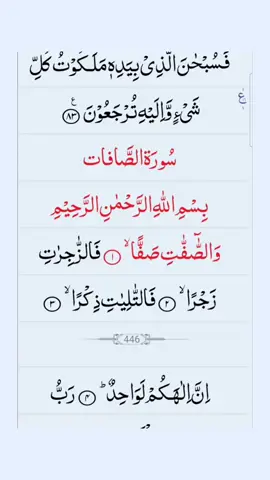 فَسُبْحٰنَ الَّذِیْ بِیَدِهٖ مَلَكُوْتُ كُلِّ
شَیْءٍ وَّاِلَیْهِ تُرْجَعُوْنَ ﴿۸۳﴾
سُورَة الصَّافات
بِسْمِ اللهِ الرَّحْمٰنِ الرَّحِیْمِ
وَالصّٰٓفّٰتِ صَفًّا ۙ﴿۱﴾ فَالزّٰجِرٰتِ
زَجْرًا ۙ﴿۲﴾ فَالتّٰلِیٰتِ ذِكْرًا ۙ﴿۳﴾
446
اِنَّ اِلٰهَكُمْ لَوَاحِدٌ ؕ﴿۴﴾ رَبُّ